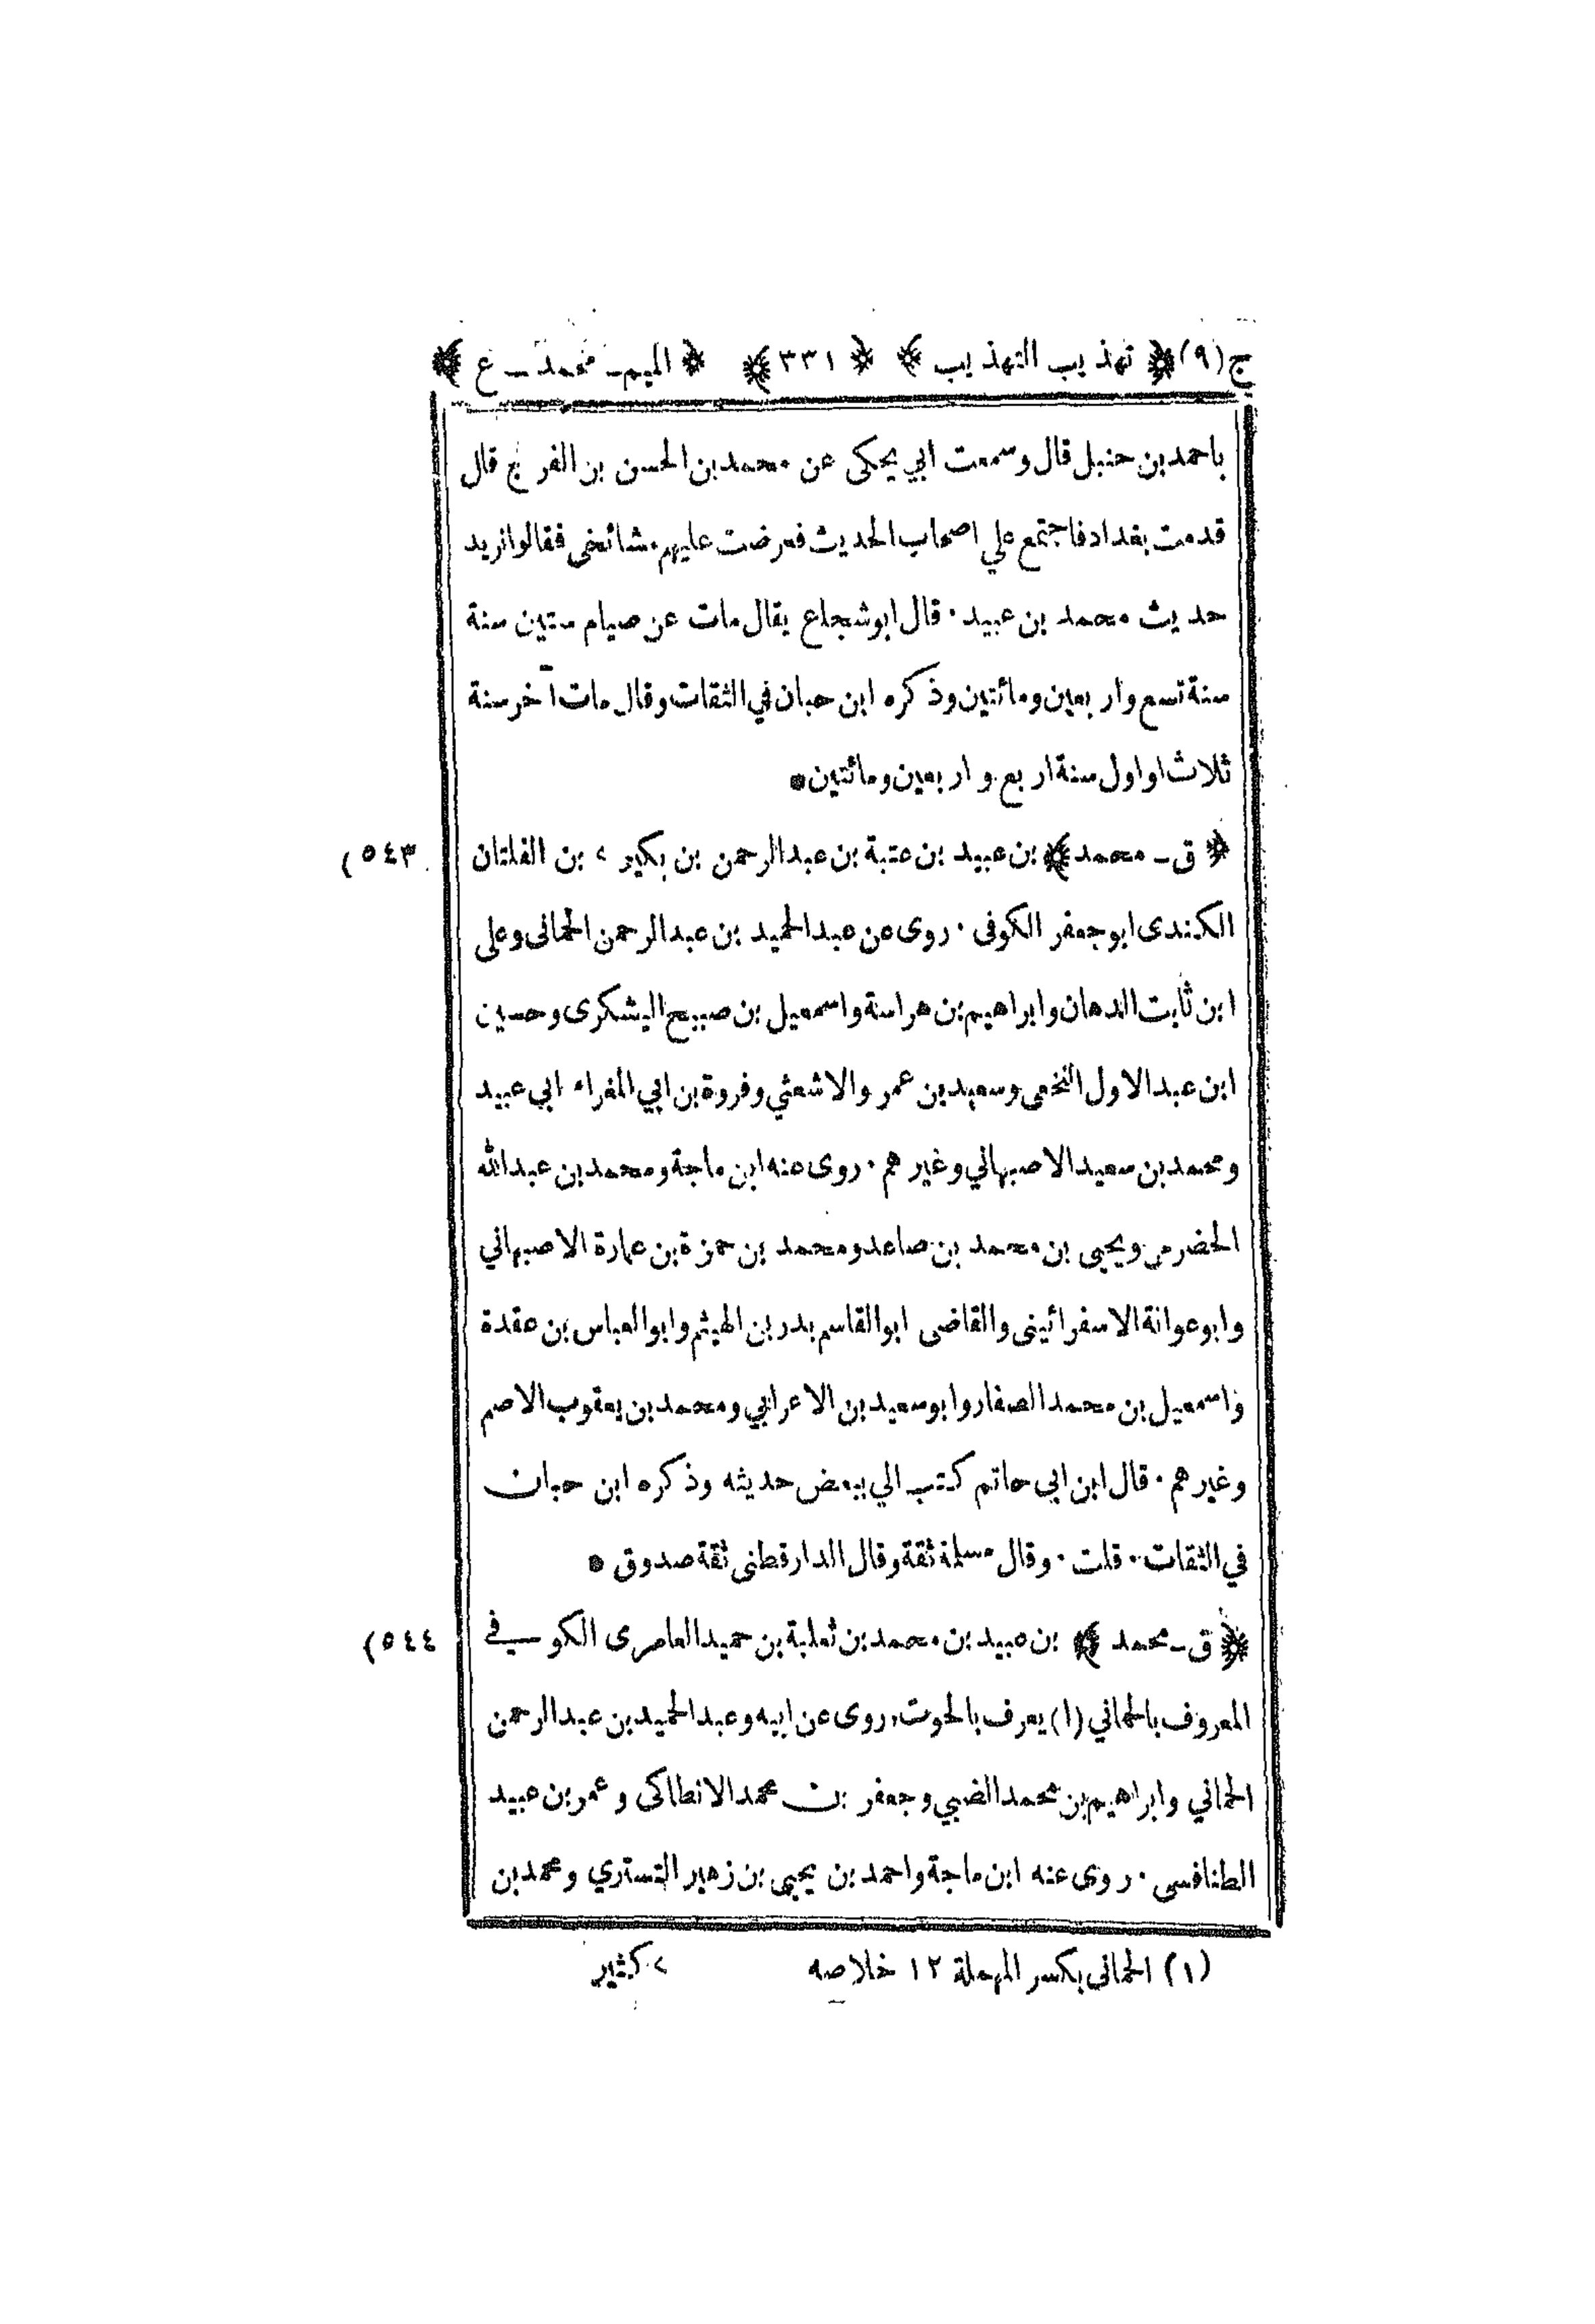 ج(٩) ﴿ تهذيب التهذيب ﴾ ﴿ ٣٣١ ﴾ ﴿ الميم - محمد - ع ﴾
باحمد بن حنبل قال وسمعت ابي يحكى عن محمد بن الحسن بن الفرج قال
قدمت بغداد فاجتمع علي اصحاب الحديث فعرضت عليهم مشائخى فقالوا نريد
حديث محمد بن عبيد ٠ قال ابو شجاع يقال مات عن صيام ستين سنة
سنة تسع واربعين ومائتين وذكره ابن حبان في الثقات وقال مات آخر سنة
ثلاث او اول سنة اربع واربعين ومائتين ●
﴿ ق - محمد ﴾ بن عبيد بن عتبة بن عبدالرحمن بن بكير ٢ بن الفلتان (٥٤٣
الكندى ابو جعفر الكوفى ٠ روى عن عبدالحميد بن عبدالرحمن الحمانى وعلى
ابن ثابت الدهان وابراهيم بن هراسة واسمعيل بن صبيح اليشكرى وحسين
ابن عبد الاول النخعى وسعيد بن عمرو الاشعثي وفروة بن ابي المغراء ابي عبيد
ومحمد بن سعيد الاصبهاني وغيرهم ٠ روى عنه ابن ماجة ومحمد بن عبدالله
الحضرمى ويحيى بن محمد بن صاعد ومحمد بن حمزة بن عمارة الاصبهاني
وابو عوانة الاسفرائينى والقاضى ابو القاسم بدر بن الهيثم وابو العباس بن عقدة
واسمعيل بن محمد الصفار وابو سعيد بن الاعرابي ومحمد بن يعقوب الاصم
وغيرهم ٠ قال ابن ابى حاتم كتب الي ببعض حديثه وذكره ابن حبان
في الثقات ٠ قلت ٠ وقال مسلمة ثقة وقال الدارقطنى ثقة صدوق ●
﴿ ق - محمد ﴾ بن عبيد بن محمد بن ثعلبة بن حميد العامرى الكوفي (٥٤٤
المعروف بالحماني (١) يعرف بالحوت، روى عن ابيه وعبدالحميد بن عبدالرحمن
الحماني وابراهيم بن محمد الضبي وجعفر بن محمد الانطاكى وعمر بن عبيد
الطنافسى ٠ روى عنه ابن ماجة واحمد بن يحيى بن زهير التستري ومحمد بن
(١) الحمانى بكسر المهملة ١٢ خلاصه ٢ كثير